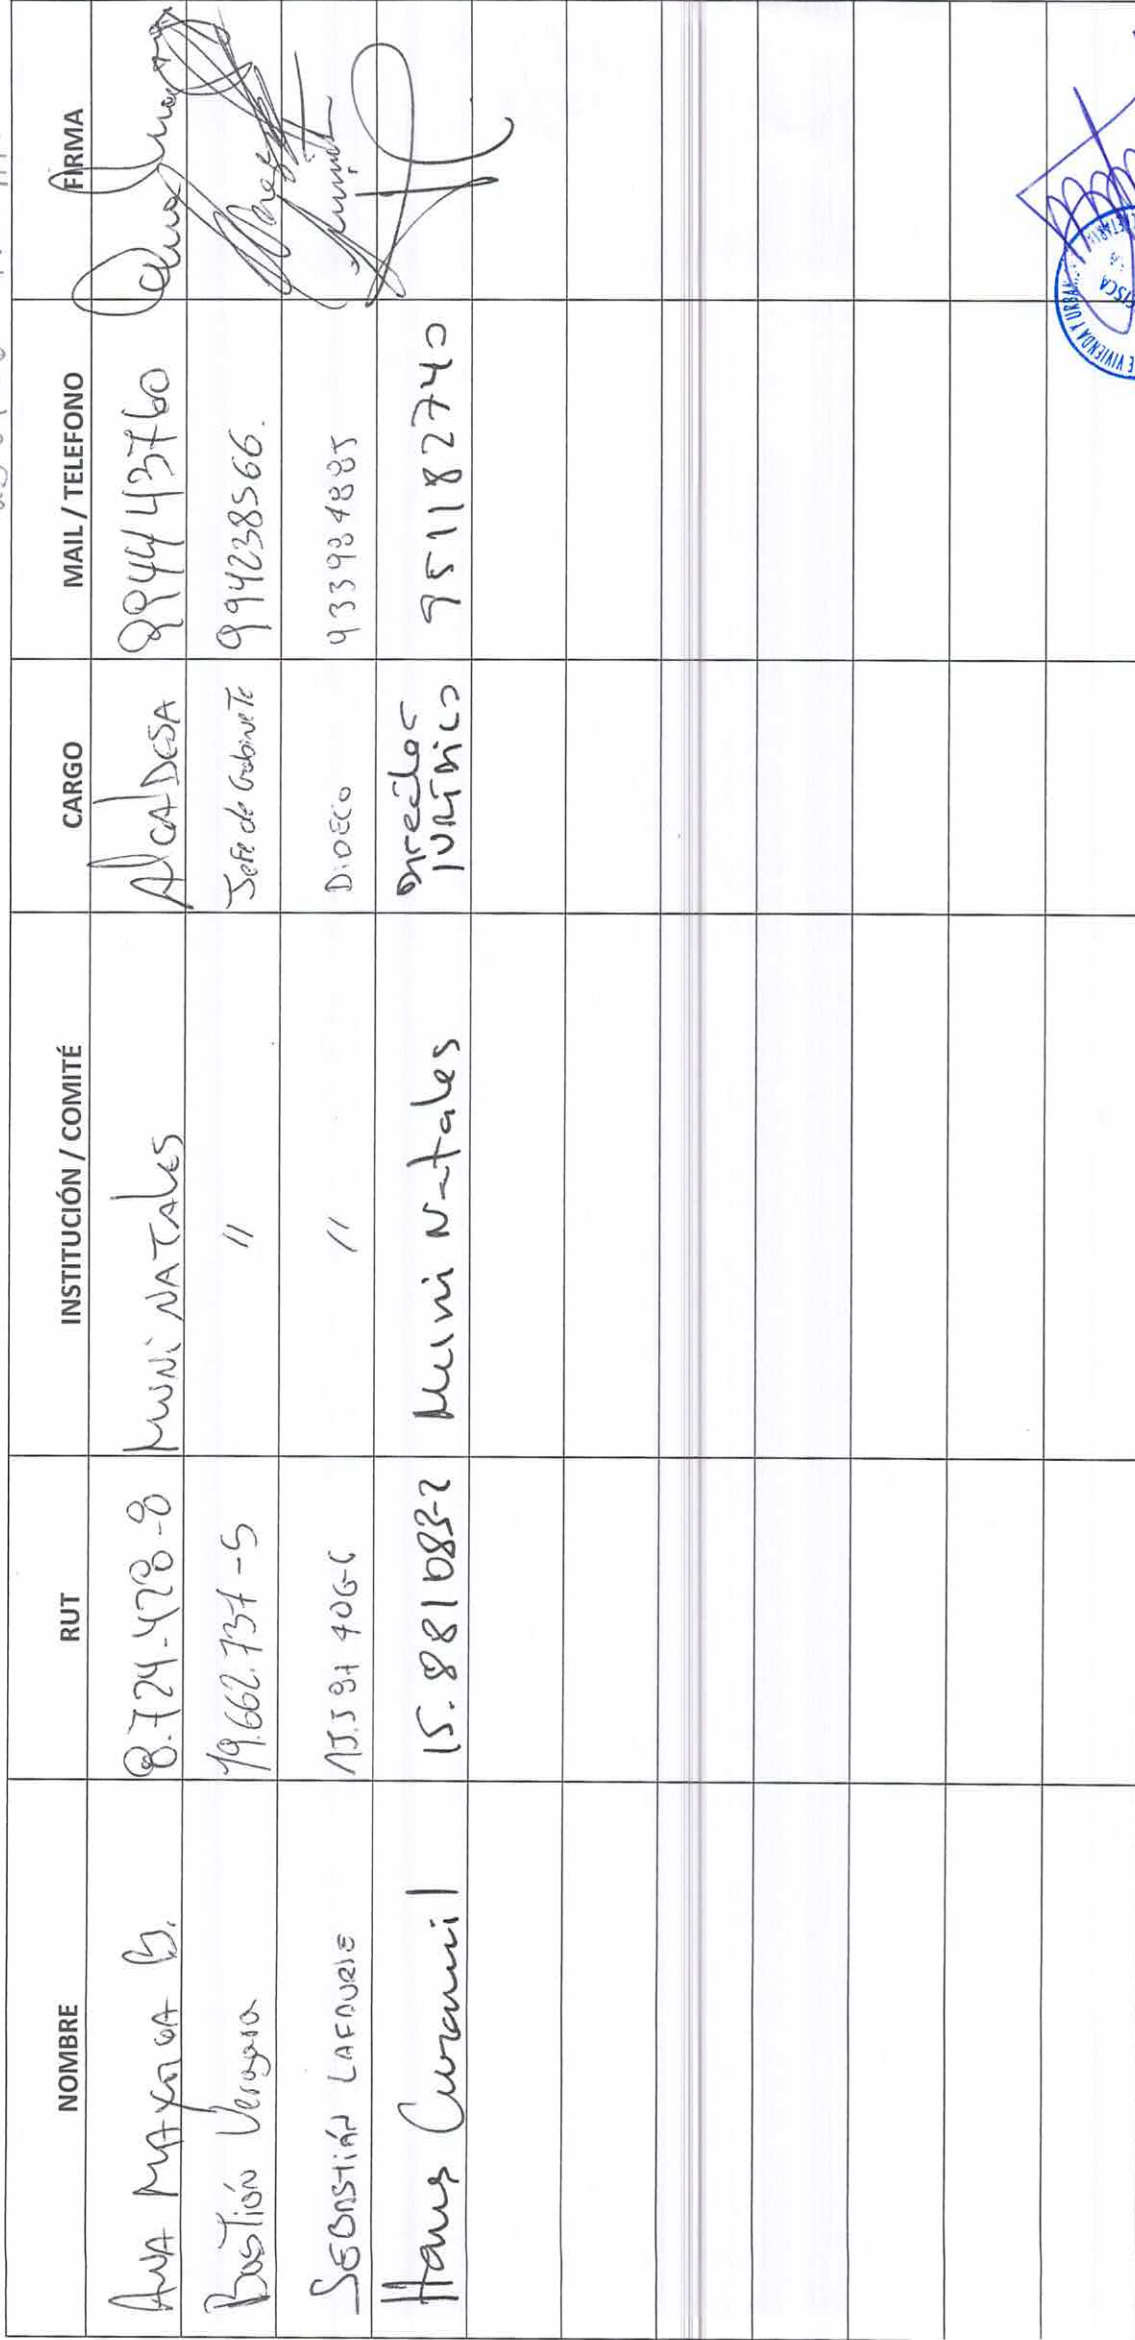 NOMBRE RUT INSTITUCIÓN / COMITÉ CARGO MAIL / TELEFONO FIRMA
ANA MAYORGA B. 8.724-428-8 MUNI NATALES ALCALDESA 994443760
Bastián Vergara 19.662.737-5 " Jefe de Gabinete 994238566.
SEBASTIÁN LAFOURIE " DIDECO 933984885
Hans Curamil 15.881083-2 Muni Natales Director JURÍDICO 951182740
E VIVIENDA Y URBAN